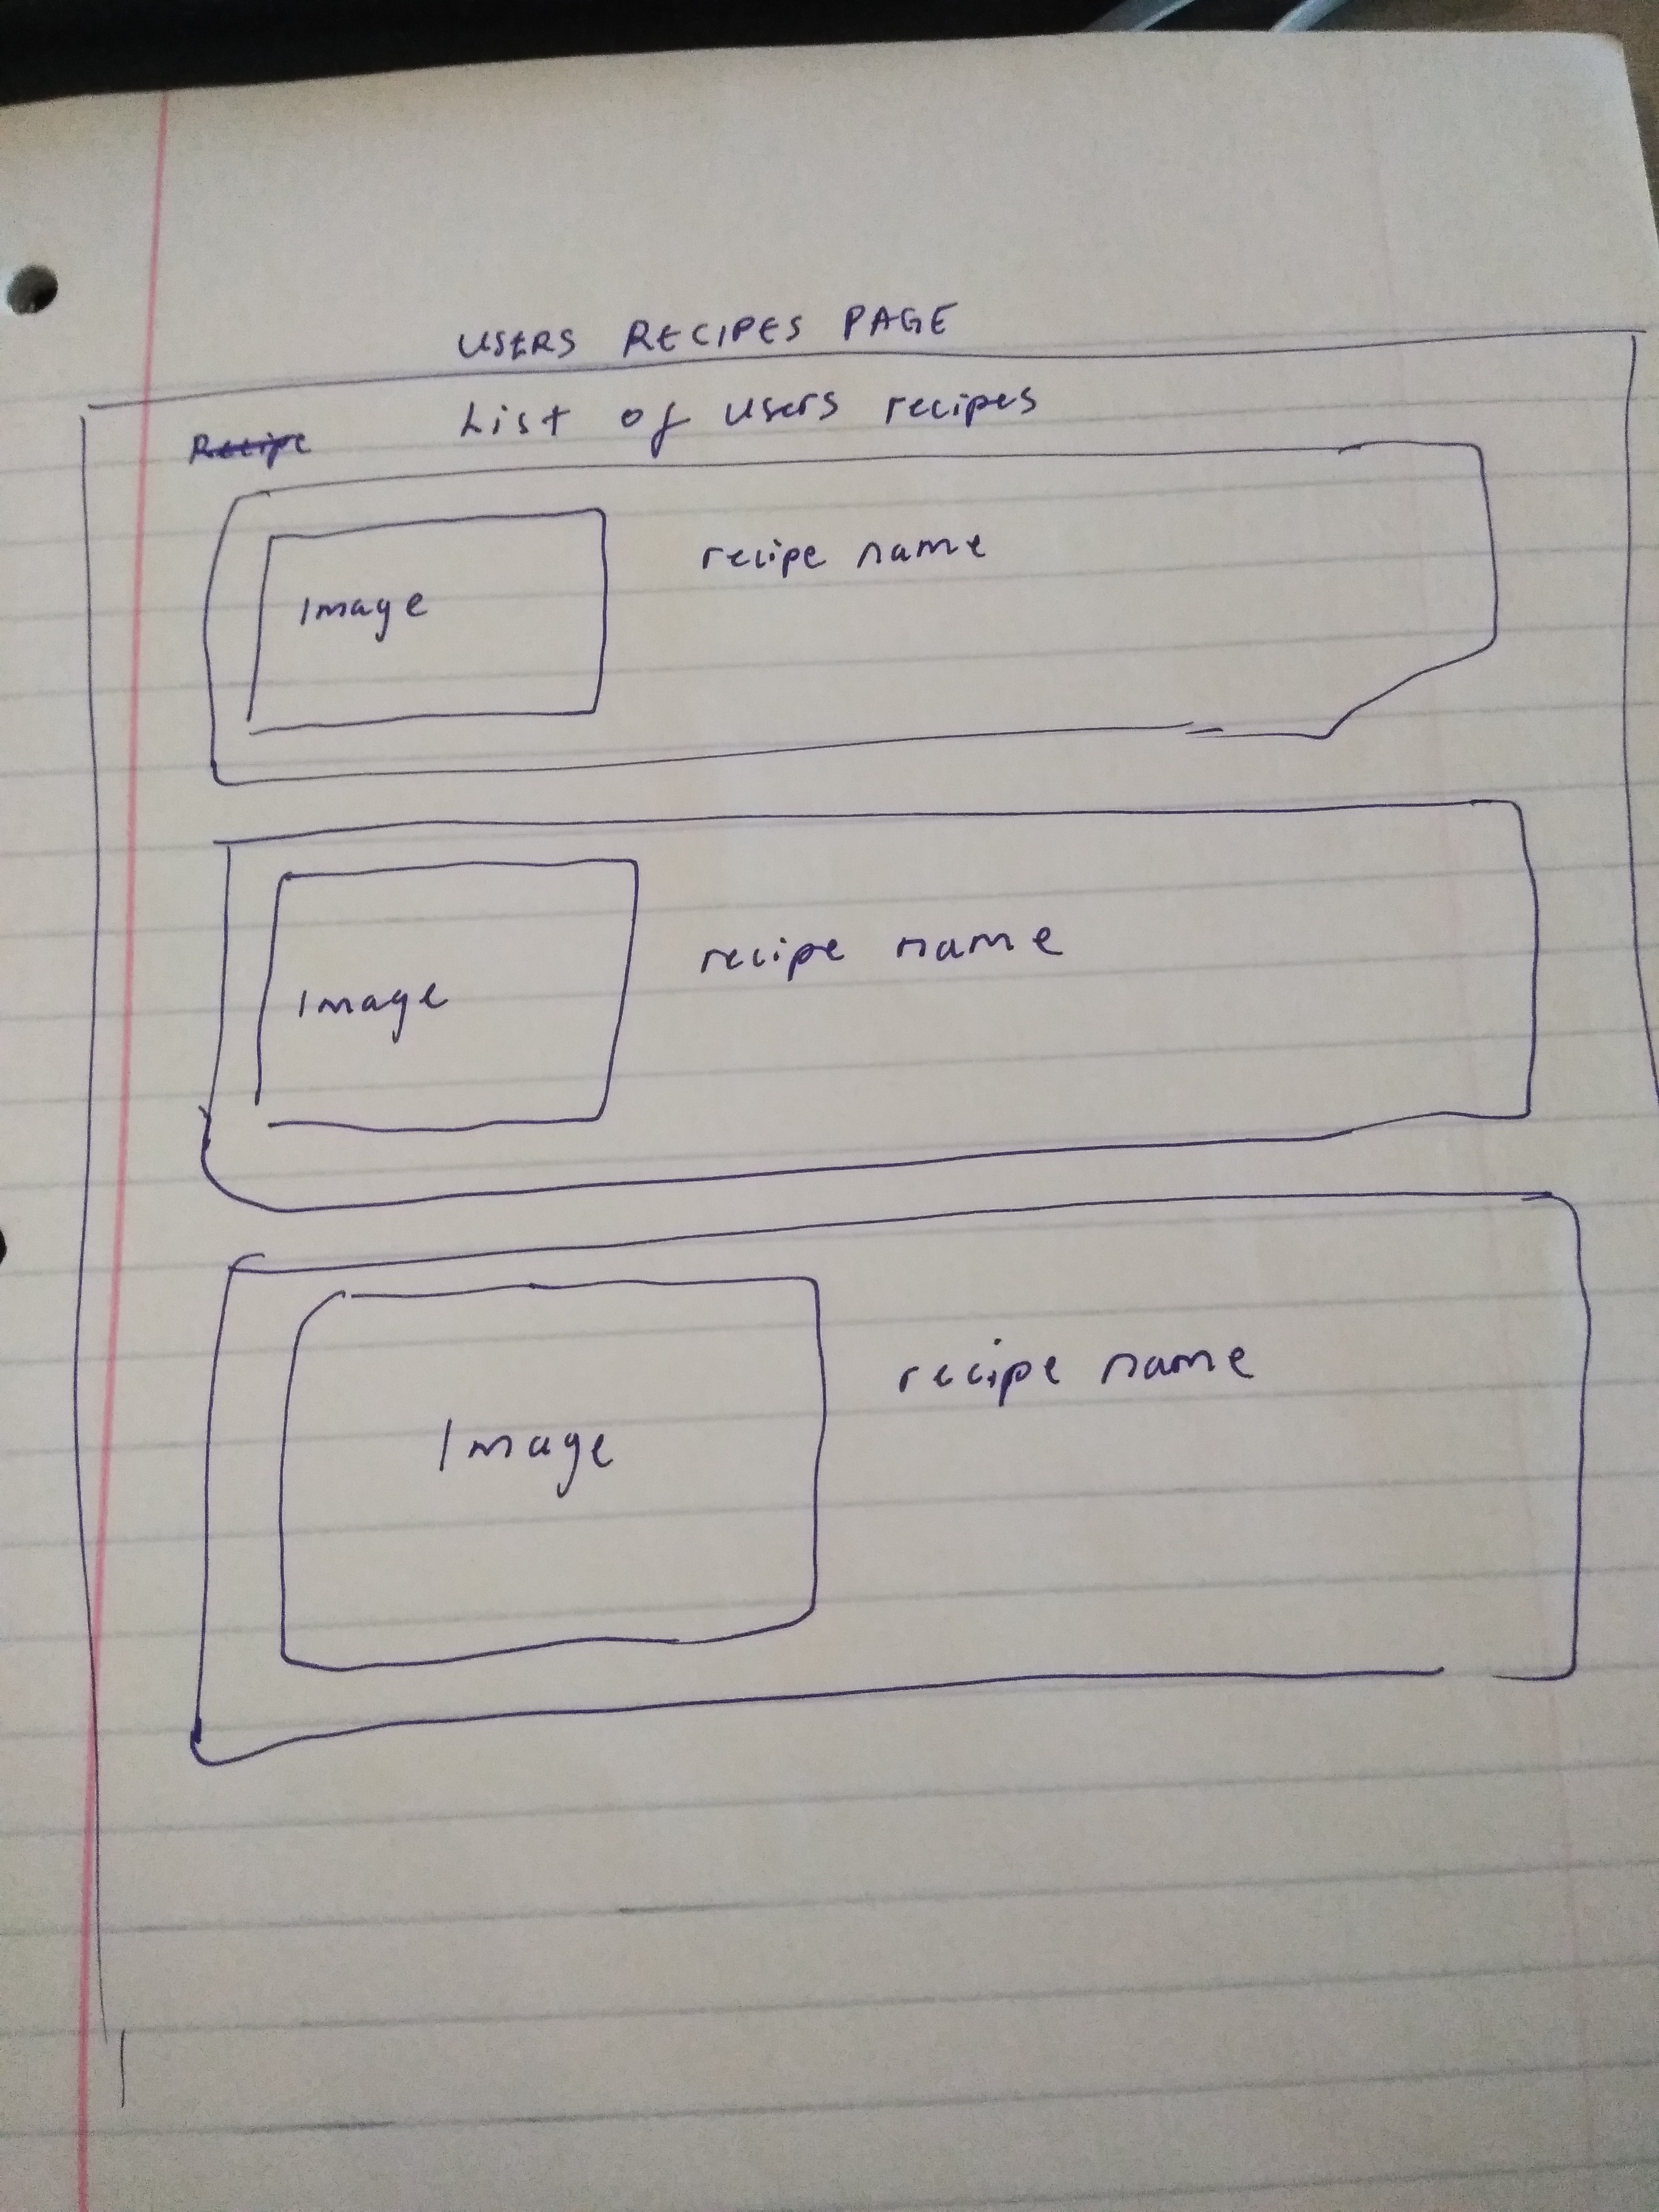 USERS RECIPES PAGE
List of users recipes
Recipe
Image
recipe name
Image
recipe name
Image
recipe name